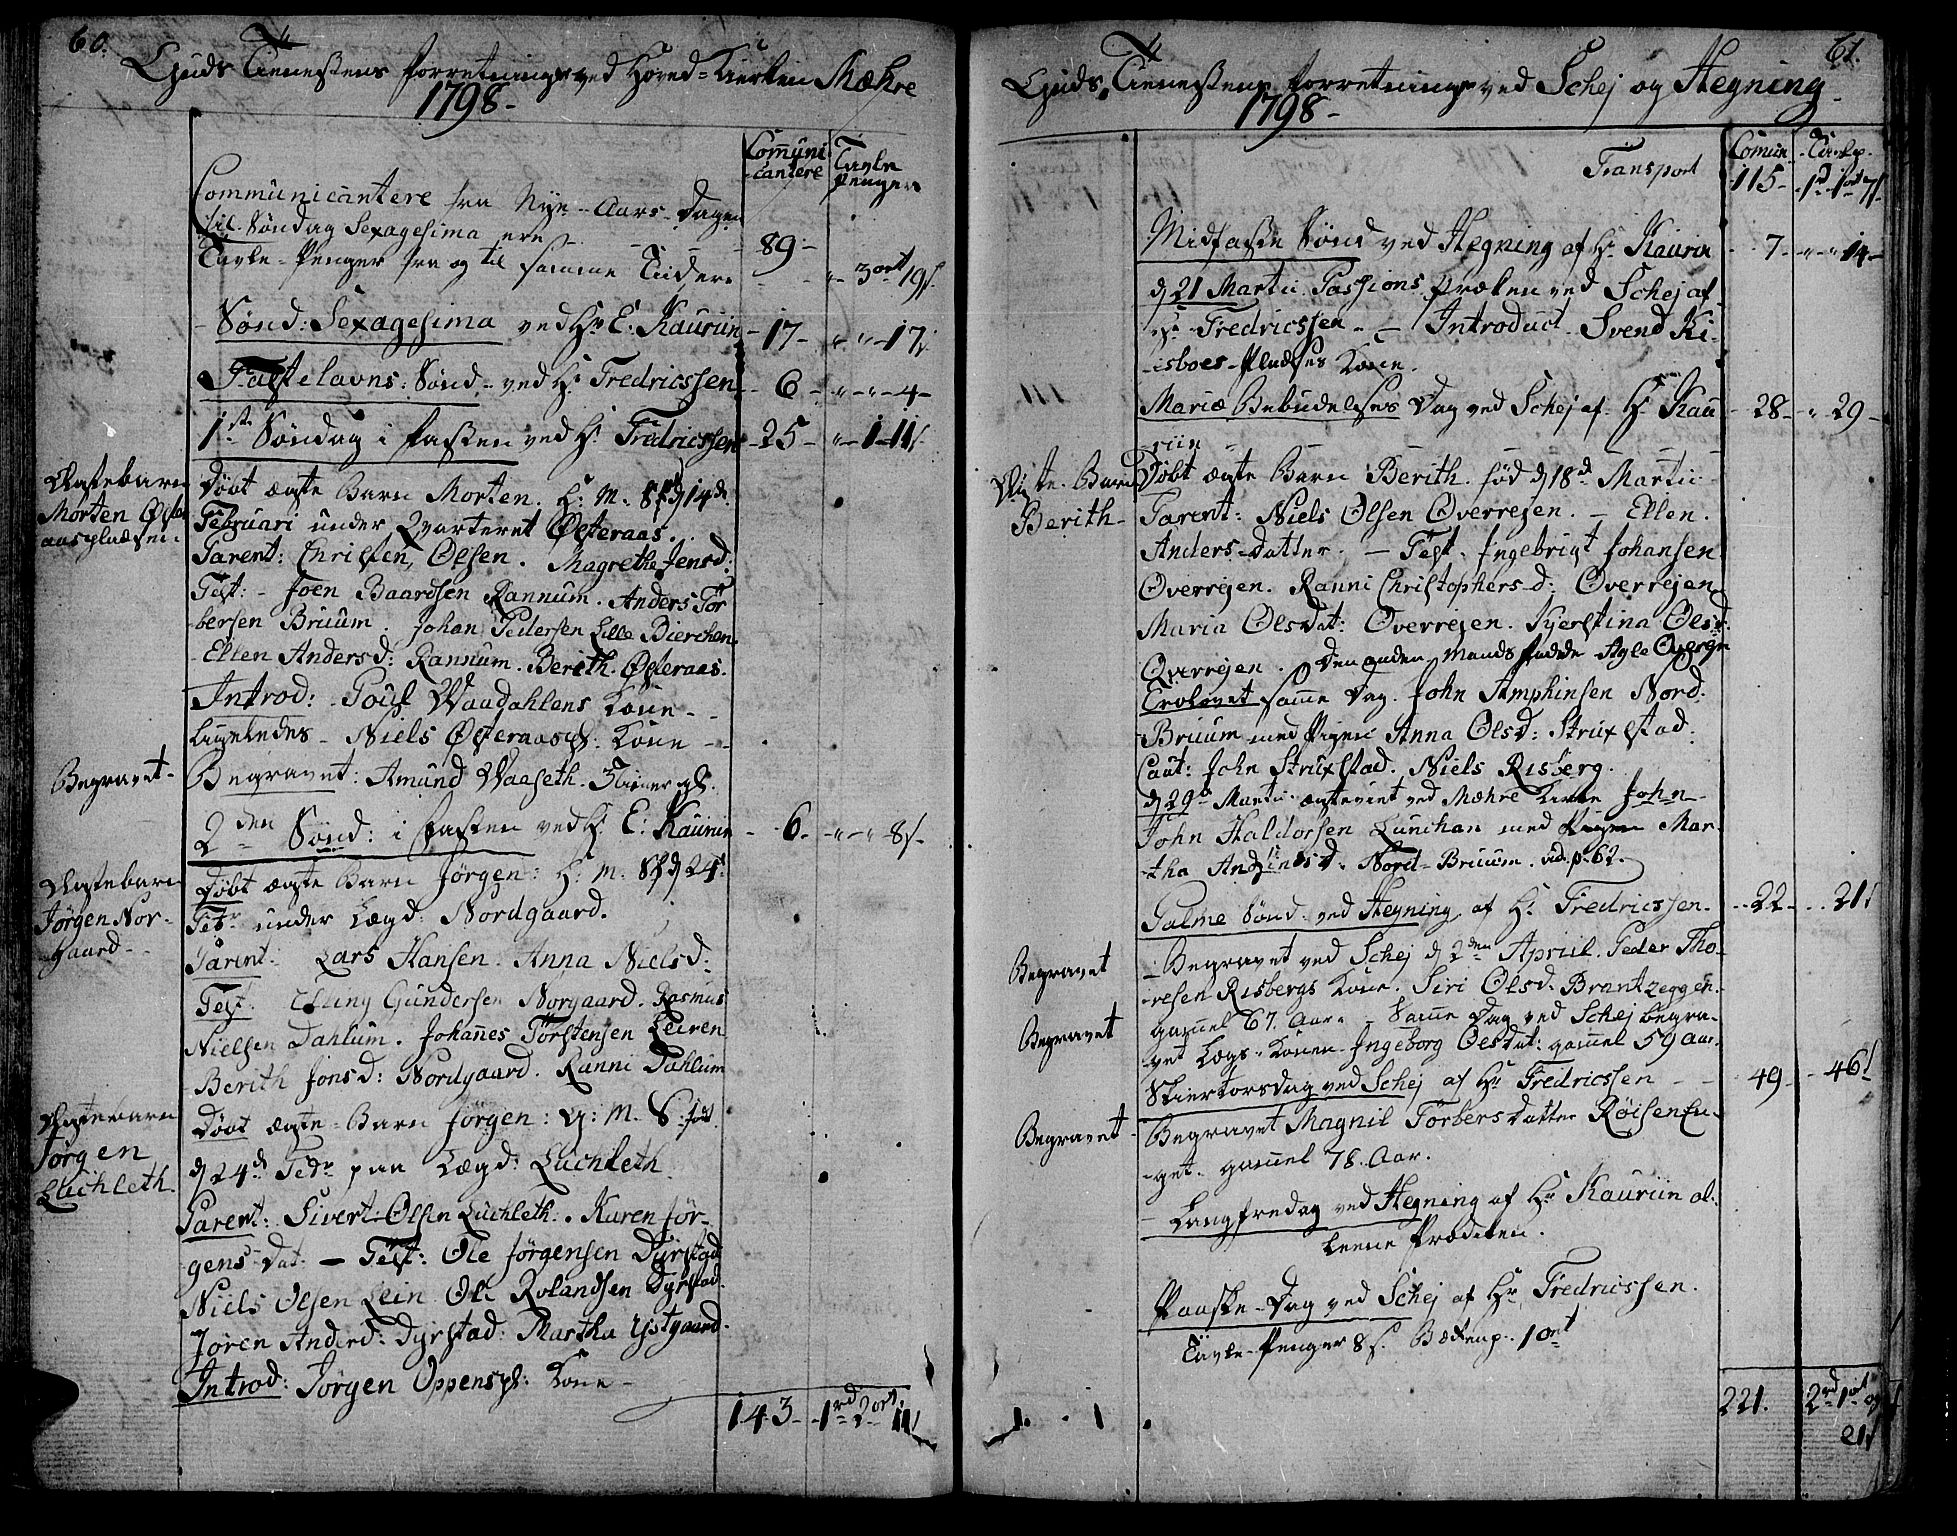 60.
Guds Tienestens Forretninge ved Hoved-Kierken Mæhre
1798-
Communi-
cantere
Tavle
Penger
Communicantere fra Nye-Aars-Dagen
til Søndag Sexagesima ere - 89-
Tavle-Penger fra og til samme Tider - 3 ort 19 s.
Sønd: Sexagesima ved Hr. E. Kauriin - 17 - 17
Fastelavns: Sønd- ved Hr. Fredricssen - 6 - 4-
1ste Søndag i Fasten ved Hr. Fredricssen - 25 - 1-11 s
Ægtebarn
Morten Øster
aaspladsen.
Døbt ægte Barn Morten. H: M. d 14de
Februari under Qvarteret Østeraas.
Parent: Christen Olsen. Magrethe Jensd:
Test:- Joen Baardsen Rannum. Anders Tor
bersen Bruum. Johan Pedersen Lille Bierchen
Ellen Andersd: Rannum. Berith Østeraas.
Introd: Poul Waadahlens Kone -
ligeledes - Niels Østeraaspl: Kone -
Begravet-
Begravet: Amund Waaseth.
2den Sønd: i Fasten ved Hr. E: Kauriin - 6 - 8 s-
Ægtebarn
Jørgen Nor-
gaard-
Døbt ægte Barn Jørgen: H: M. d 24
Febr under Lægd: Nordgaard.
Parent: Lars Hansen. Anna Nielsd:
Test. Elling Gundersen Norgaard. Rasmus
Nielsen Dahlum. Johannes Torstensen Leiren
Berith Jonsd: Nordgaard. Ranni Dahlum
Ægtebarn
Jørgen
Luchleth.
Døbt ægte-Barn Jørgen: M.
d 24de Febr paa Lægd: Luchleth.
Parent: Sivert Olsen Luchleth. Karen Jør-
gens-Dat. - Test: Ole Jørgensen Dyrstad
Niels Olsen Lein. Ole Rolandsen Dyrstad.
Joren Anderd: Dyrstad: Martha Ystgaard.
Introd: Jørgen Oppenspl: Kone -
143- 1 rd 2 ort 11 s
61.
Guds Tienestens Forretninge ved Schej og Hegning
1798-
Comun Tavlp.
Transport 115- 1 d 1 ort 7 s
Midfaste Sønd ved Hegning af Hr. Kauriin - 7 - 14-
d 21 Martii Passions Præken ved Schej af
Hr. Fredricssen. - Introduct. Svend Ki-
isboes-Pladses Kone.
Mariæ Bebudelses Dag ved Schej af Hr. Kau - 28 - 29-
riin
Ægte-Barn
Berith-
Døbt ægte Barn Berith. fød d 18d Martii
Parent: Niels Olsen Overrejen. - Ellen
Anders-datter. - Test. Ingebrigt Johansen
Overrejen. Ranni Christophers-d: Overrejen
Maria Olsdat: Overrejen. Kjerstina Olsd.
Overrejen. Den anden Mands Fadde Agle Overejn
Trolovet samme Dag. John Amphinsen Nord.
Bruum med Pigen Anna Olsd: Struxstad.
Caut: John Struxstad. Niels Risberg.
d 29d Martii ægteviet ved Mæhre Kirke John
John Haldorsen Lunchan med Pigen Mar-
tha Nord-Bruum. vid. p. 62.
Palme Sønd ved Hegning af Hr. Fredricssen. - 22 - 21 s
Begravet
Begravet ved Schej d 2den Apriil. Peder Tho-
resen Risbergs Kone. Siri Olsd. Brantzeggen.
Begravet
gammel 67. Aar. Samme Dag ved Schej begra-
vet Lægs-Konen Ingeborg Olsdat: gammel 59 Aar.
Skiertorsdag ved Schej af Hr. Fredricssen - 49 - 46 s
Begravet-
Begravet Magnil Torbers datter Røisen
get. gammel 78. Aar.
Langfredag ved Hegning af Hr Kauriin al-
leene Præken.
Paaske-Dag ved Schej af Hr Fredricssen.
Tavle-Penger 8 s. Bækenp. 1 ort
221. 2 rd 1 ort
21 s